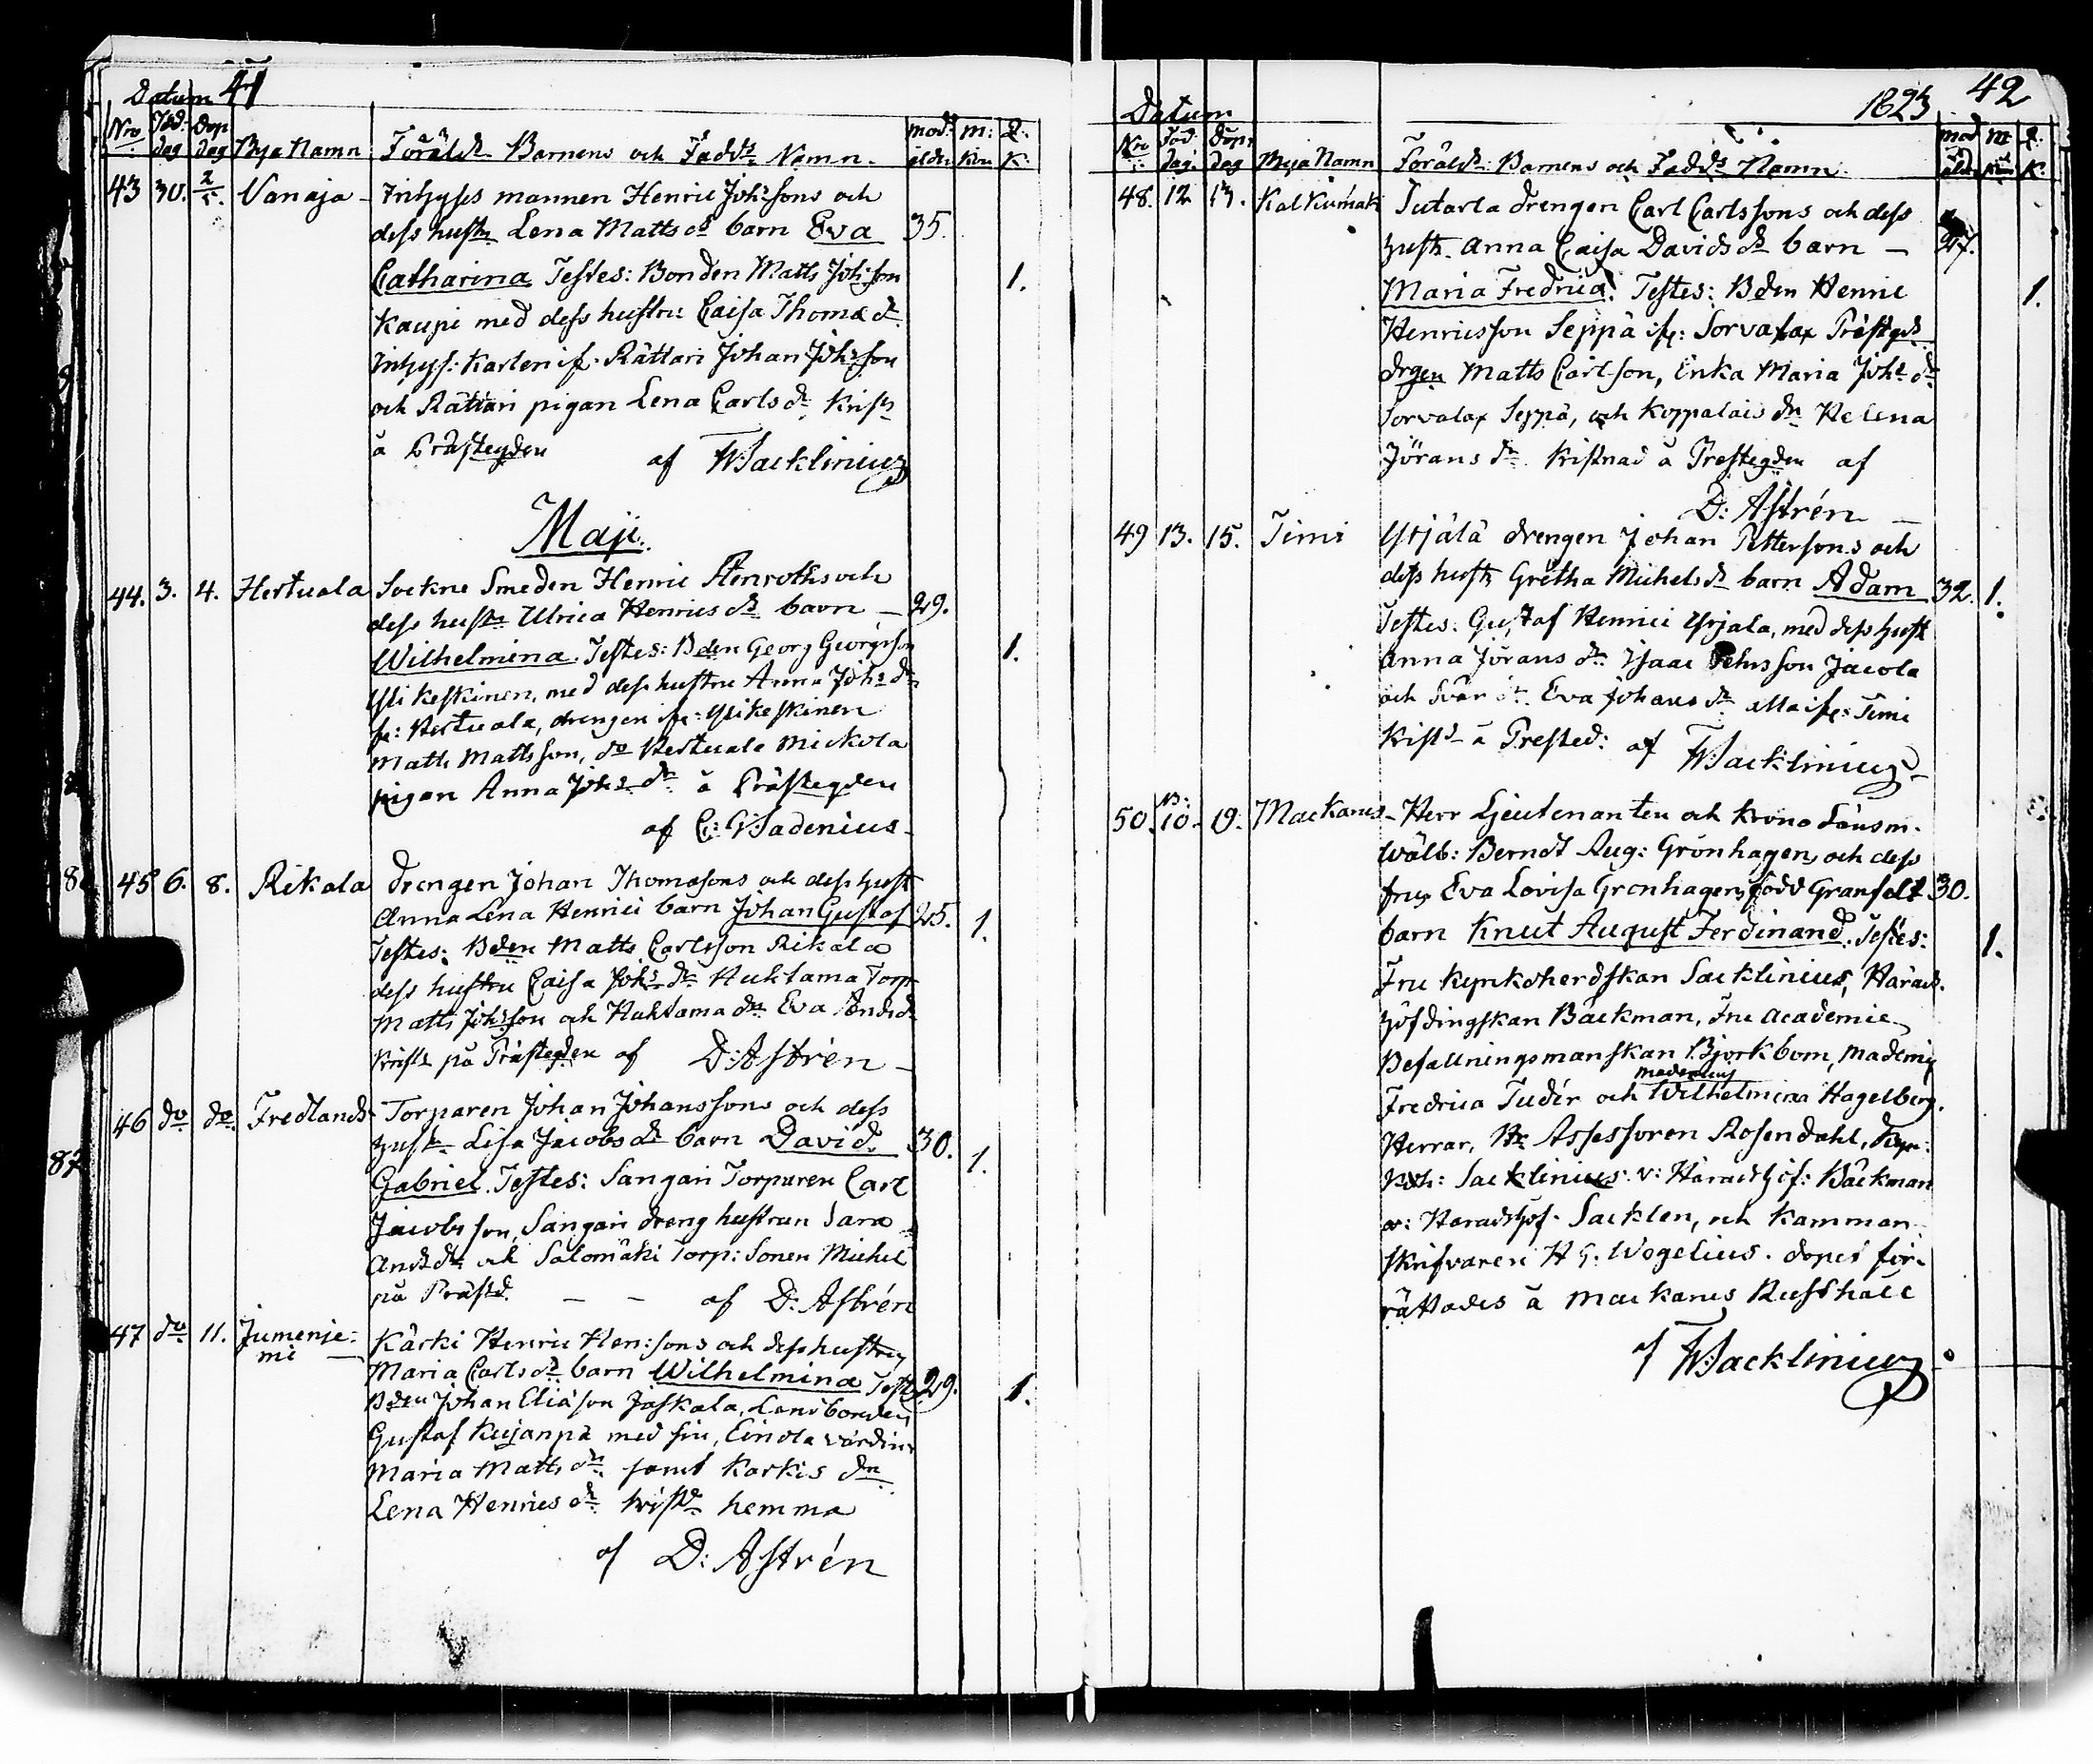 Datum 41
Nro Föd. dag Dop dag Bya Namn Föräld: Barnens och Fadd:s Namn. mod: ålder m: kön Q: K:
43 30. 2/5. Vanaja - Inhyses mannen Henric Joh:s Sons och
dess hustr Lena Matts dr barn Eva 35.
Catharina Testes: Bonden Matts Joh:son 1.
Kaupi med dess hustru Caisa Thomæ dr.
Inhys: Karlen if: Rättari Johan Joh:son
och Rättari pigan Lena Carls dr Krist
å Prästegden af W:Sacklinius
Maji.
44. 3. 4. Hertuala Sockne Smeden Henric Stenroths och
dess hustr Ulrica Henrics dr barn — 29.
Wilhelmina. Testes: Bden Georg Georgsson 1.
Yli keskinen, med dess hustru Anna Joh:s dr
fr: Hertuala, drengen ifr: Yli keskinen
Matts Mattsson, do Hertuala Mickola
pigan Anna Joh:s dr å Prästegden
af C: G:Sadenius
45 6. 8. Rikala Drengen Johan Thomasons och dess hustr
Anna Lena Henrici barn Johan Gustaf 25. 1.
Testes: Bden Matts Carlsson Rikala
dess hustru Caisa Joh:s dr Huhtama Torp
Matts Joh:sson och Huhtama dn Eva Ands dr
Krist på Prästegden af D:Astrén
46 do do. Fredlands Torparen Johan Johanssons och dess
hustr Lisa Jacobs dr barn David 30. 1.
Gabriel. Testes: Sangari Torparen Carl
Jacobsson, Sangari dreng hustrun Sara
Ands dr och Salomäki Torp: Sonen Michel
på Präst:d. — — af D: Astrén
47 do 11. Jumenje-
mi — Kärki Henric Hen:sons och dess hustru
Maria Carls dr barn Wilhelmina Test: 29. 1.
Bden Johan Eliæson Jaskala, Landbonden
Gustaf Kujanpä med sin, Einola värdin
Maria Matts dr. samt Karkis dn
Lena Henrics dr. krist hemma
af D: Astrén
1823 42
Datum
Nro Föd dag. Dop: dag Bya Namn Föräld: Barnens och Fadds Namn. mod ålder m kön Q: K:
48. 12 13. Kalkumaki Tutarla drengen Carl Carlssons och dess
hustr. Anna Caisa Davids dr barn — 27.
Maria Fredrica. Testes: Bden Henric 1.
Henricsson Seppä ifr: Sorvalax Prästgds
drgen Matts Carlson, Erika Maria Joh:s dr
Sorvalax Seppä, och Koppalais dn Helena
Jörans dr. Kristnad å Prestegden af
D: Astrén —
49 13. 15. Timi Yrjälä drengen Johan Pettersons och
dess hustr Gretha Michels dr barn Adam 32. 1.
Testes: Gustaf Henrici Yrjala, med dess hustr
Anna Jörans dr. Isaac Pehrsson Jacola
och Svär dr. Eva Johans dr alla ifr: Timi
Krist å Prested: af W:Sacklinius
50. 10. 19. Mackanes - Herr Ljeutenanten och Krono Länsm.
Wälb: Berndt Aug: Grönhagens och dess
fru Eva Lovisa Grönhagen, född Granfelt 30.
barn Knut August Ferdinand. Testes: 1.
Fru Kyrkoherdskan Sacklinius, Härads-
höfdingskan Bäckman, Fru Academie
Befallningsmanskan Bjorkbom, Madmslle
Fredrica Tudér och Wilhelmina Hagelberg.
Herrar, Hr Assessoren Rosendahl, Kyr-
koh: Sacklinius. v: Häradshöf: Bäckman
v: Häradshöf. Sacklen, och Kamman-
skrifvaren H G. Wogelius. dopet för-
rättades å Mackanes Rusthåll
af W:Sacklinius